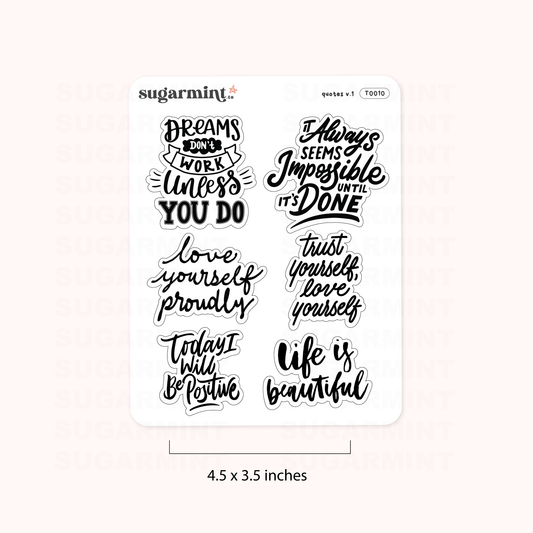 sugarmint co
quotes v.1 T0010
DREAMS
DON'T
WORK
Unless
YOU DO
IT Always
SEEMS
Impossible
UNTIL
IT'S DONE
love
yourself
proudly
trust
yourself,
love
yourself
Today I
Will
Be Positive
Life is
beautiful
4.5 x 3.5 inches
SUGARMINT